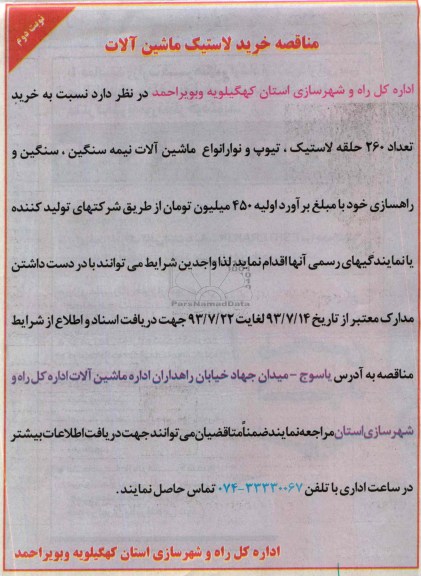 نوبت دوم
مناقصه خرید لاستیک ماشین آلات
اداره کل راه و شهرسازی استان کهگیلویه وبویراحمد در نظر دارد نسبت به خرید
تعداد ۲۶۰ حلقه لاستیک ، تیوپ و نوارانواع ماشین آلات نیمه سنگین ، سنگین و
راهسازی خود با مبلغ برآورد اولیه ۴۵۰ میلیون تومان از طریق شرکتهای تولید کننده
یا نمایندگیهای رسمی آنها اقدام نماید. لذا واجدین شرایط می توانند با در دست داشتن
مدارک معتبر از تاریخ ۹۳/۷/۱۴ لغایت ۹۳/۷/۲۲ جهت دریافت اسناد و اطلاع از شرایط
مناقصه به آدرس یاسوج - میدان جهاد خیابان راهداران اداره ماشین آلات اداره کل راه و
شهرسازی استان مراجعه نمایند ضمناً متقاضیان می توانند جهت دریافت اطلاعات بیشتر
در ساعت اداری با تلفن ۳۳۳۳۰۰۶۷-۰۷۴ تماس حاصل نمایند.
اداره کل راه و شهرسازی استان کهگیلویه وبویراحمد
ParsNamadData